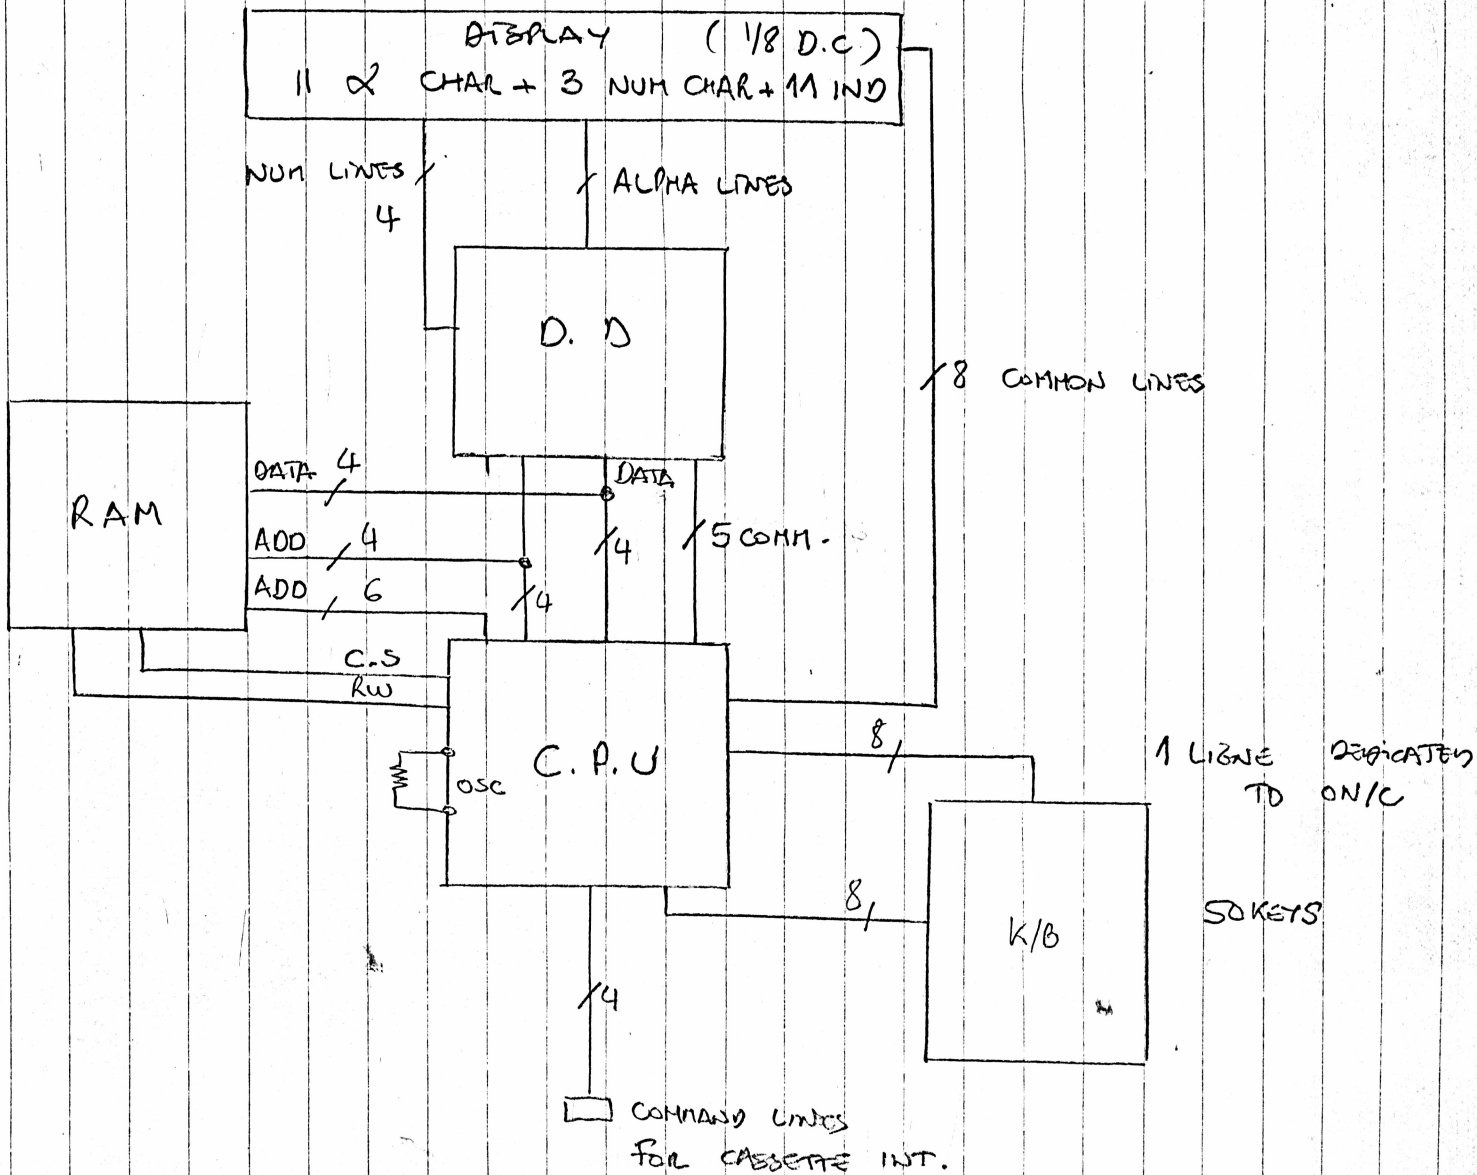 DISPLAY ( 1/8 D.C )
11 α CHAR + 3 NUM CHAR + 11 IND
NUM LINES
4
ALPHA LINES
D. D
8 COMMON LINES
RAM
DATA 4
DATA
ADD 4
4
5 COMM.
ADD 6
4
C.S
RW
C.P.U
OSC
8
1 LIGNE DEDICATED
TO ON/C
8
K/B
50 KEYS
4
COMMAND LINES
FOR CASSETTE INT.